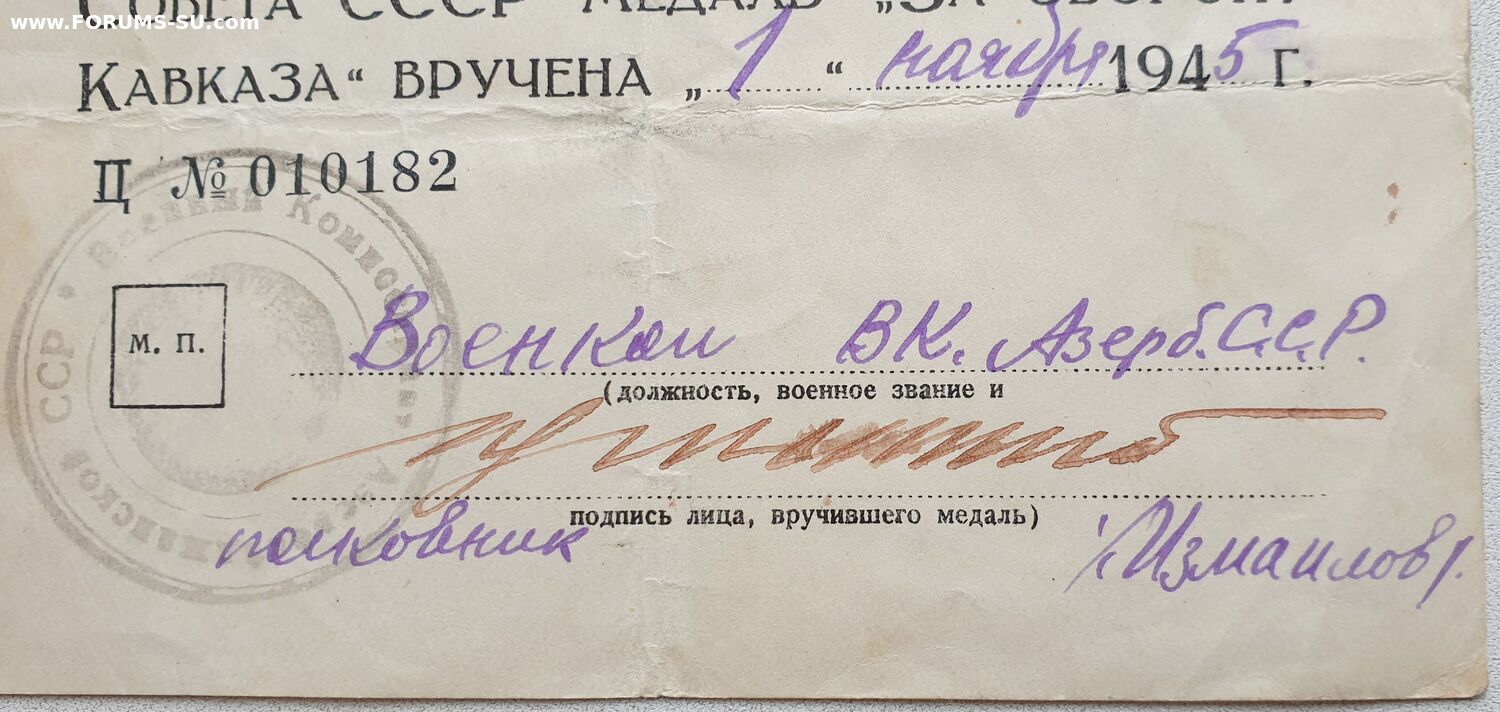 www.FORUMS-SU.com
Совета СССР медаль „За оборону
Кавказа“ вручена „1“ ноября 1945 г.
Ц № 010182
Военный Комис
М. П.
ССР
Военком ВК. Азерб.С.С.Р.
(должность, военное звание и
подпись лица, вручившего медаль)
полковник /Измаилов/.